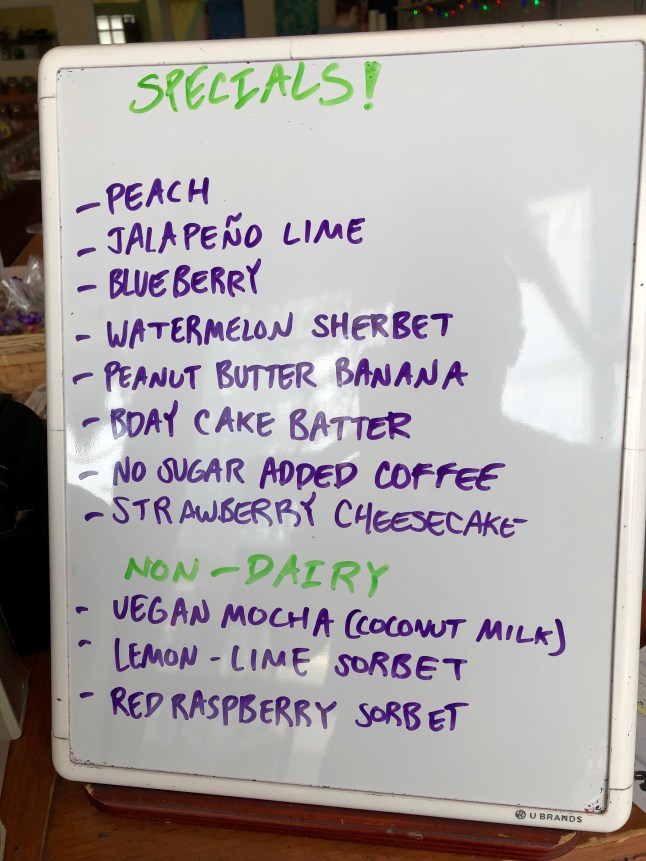 SPECIALS!
- PEACH
- JALAPEÑO LIME
- BLUEBERRY
- WATERMELON SHERBET
- PEANUT BUTTER BANANA
- BDAY CAKE BATTER
- NO SUGAR ADDED COFFEE
- STRAWBERRY CHEESECAKE
NON-DAIRY
- VEGAN MOCHA (COCONUT MILK)
- LEMON-LIME SORBET
- RED RASPBERRY SORBET
U BRANDS